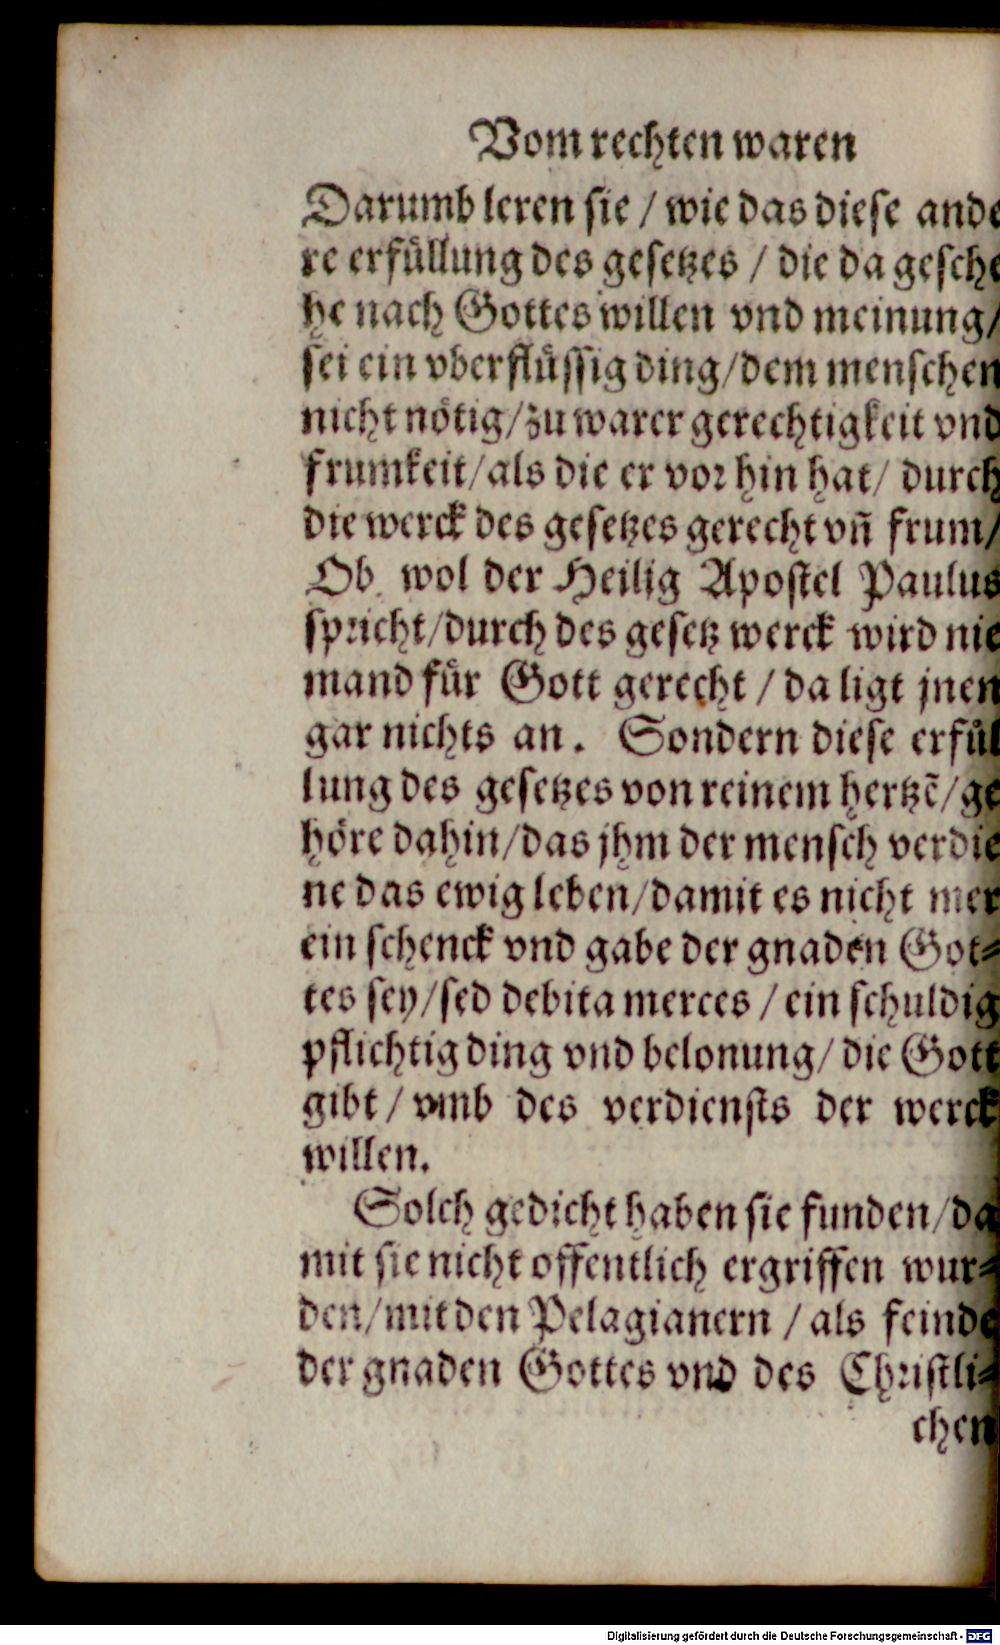 Vom rechten waren
Darumb leren sie / wie das diese ande
re erfüllung des gesetzes / die da gesche
he nach Gottes willen vnd meinung/
sei ein vberflüssig ding/dem menschen
nicht nötig/zu warer gerechtigkeit vnd
frumkeit/als die er vor hin hat/ durch
die werck des gesetzes gerecht vñ frum/
Ob wol der Heilig Apostel Paulus
spricht/durch des gesetz werck wird nie
mand für Gott gerecht / da ligt jnen
gar nichts an. Sondern diese erfül
lung des gesetzes von reinem hertzẽ/ge
höre dahin/das jhm der mensch verdie
ne das ewig leben/damit es nicht mer
ein schenck vnd gabe der gnaden Got⸗
tes sey/sed debita merces / ein schuldig
pflichtig ding vnd belonung/ die Gott
gibt / vmb des verdiensts der werck
willen.
Solch gedicht haben sie funden/da
mit sie nicht offentlich ergriffen wur⸗
den/mit den Pelagianern / als feinde
der gnaden Gottes vnd des Christli⸗
chen
Digitalisierung gefördert durch die Deutsche Forschungsgemeinschaft - DFG